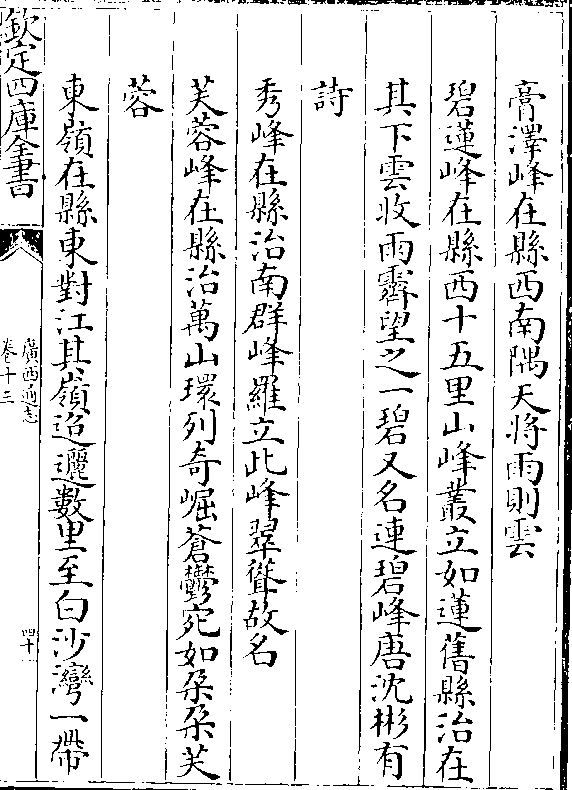 膏澤峰在縣西南隅天将雨則雲
碧蓮峰在縣西十五里山峰叢立如蓮舊縣治在
其下雲收雨霽望之一碧又名連碧峰唐沈彬有
詩
秀峰在縣治南群峰羅立此峰翠聳故名
芙蓉峰在縣治萬山環列奇崛蒼鬱宛如朶朶芙
蓉
東嶺在縣東對江其嶺迢邐數里至白沙灣一帶
欽定四庫全書
廣西通志
卷十三
四十一